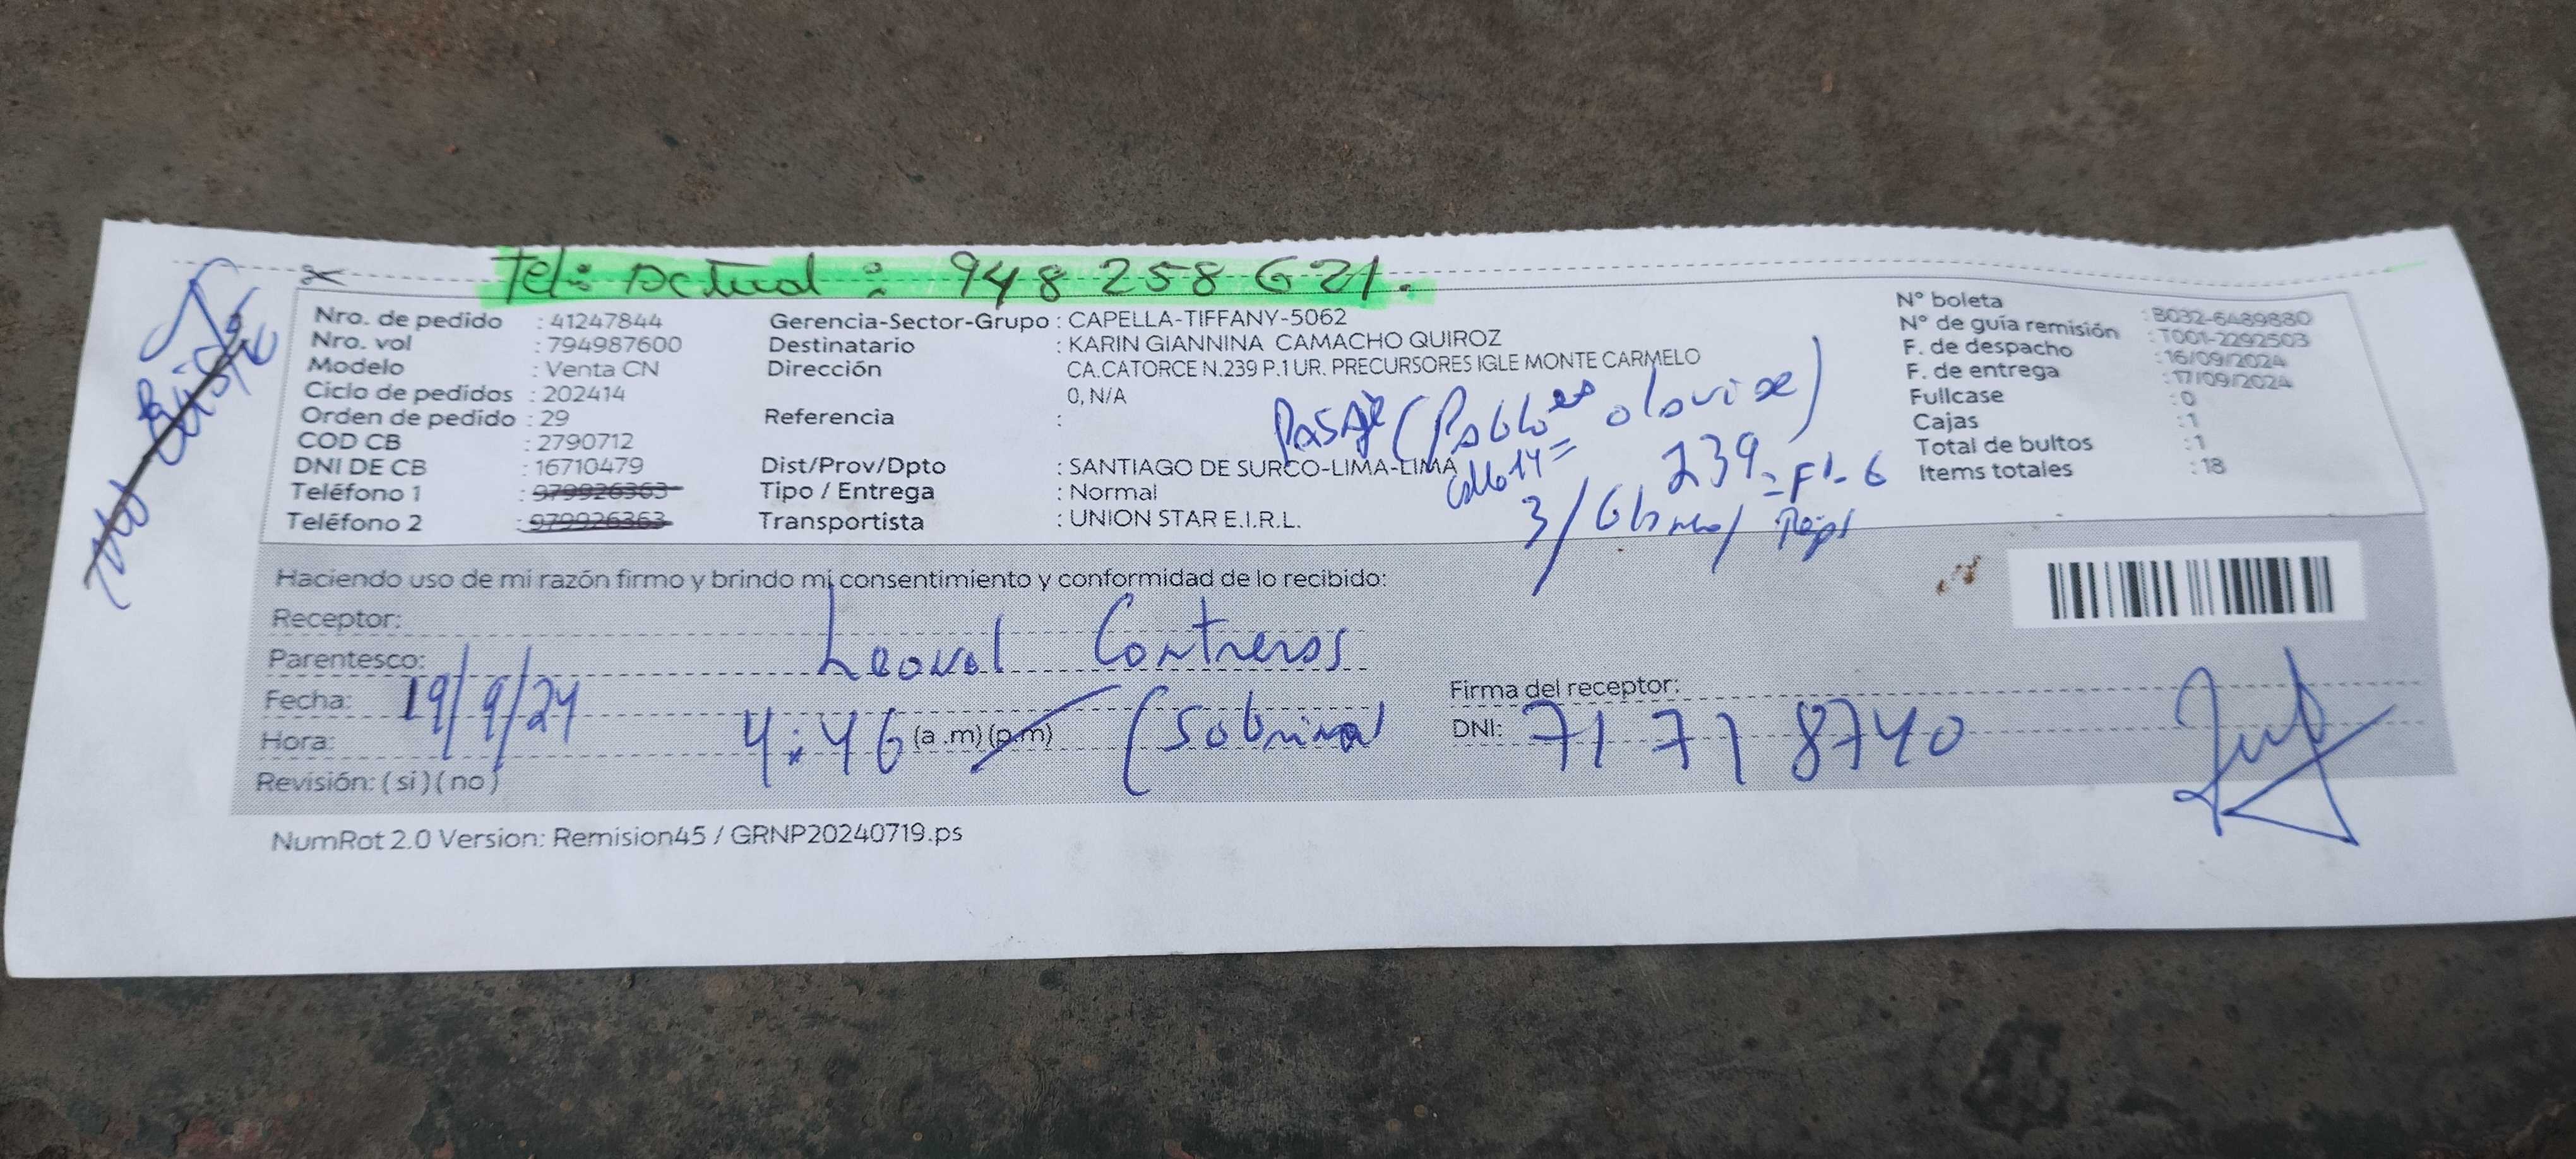 Tel: Actual : 948 258 621.
Nro. de pedido : 41247844
Nro. vol : 794987600
Modelo : Venta CN
Ciclo de pedidos : 202414
Orden de pedido : 29
COD CB : 2790712
DNI DE CB : 16710479
Teléfono 1 : 979926363
Teléfono 2 : 979926363
Gerencia-Sector-Grupo : CAPELLA-TIFFANY-5062
Destinatario : KARIN GIANNINA CAMACHO QUIROZ
Dirección : CA.CATORCE N.239 P.1 UR. PRECURSORES IGLE MONTE CARMELO
0, N/A
Referencia :
Dist/Prov/Dpto : SANTIAGO DE SURCO-LIMA-LIMA
Tipo / Entrega : Normal
Transportista : UNION STAR E.I.R.L.
Pasaje (Pablo olavide)
Calle 14 =
239
3/
N° boleta : B032-6489880
N° de guía remisión : T001-2292503
F. de despacho : 16/09/2024
F. de entrega : 17/09/2024
Fullcase : 0
Cajas : 1
Total de bultos : 1
Items totales : 18
Haciendo uso de mi razón firmo y brindo mi consentimiento y conformidad de lo recibido:
Receptor:
Parentesco: Contreras
Fecha: 19/9/24
Hora: 4:46 (a .m) (p.m) (Sobrina)
Revisión: ( si ) ( no )
Firma del receptor:
DNI: 71718740
NumRot 2.0 Version: Remision45 / GRNP20240719.ps